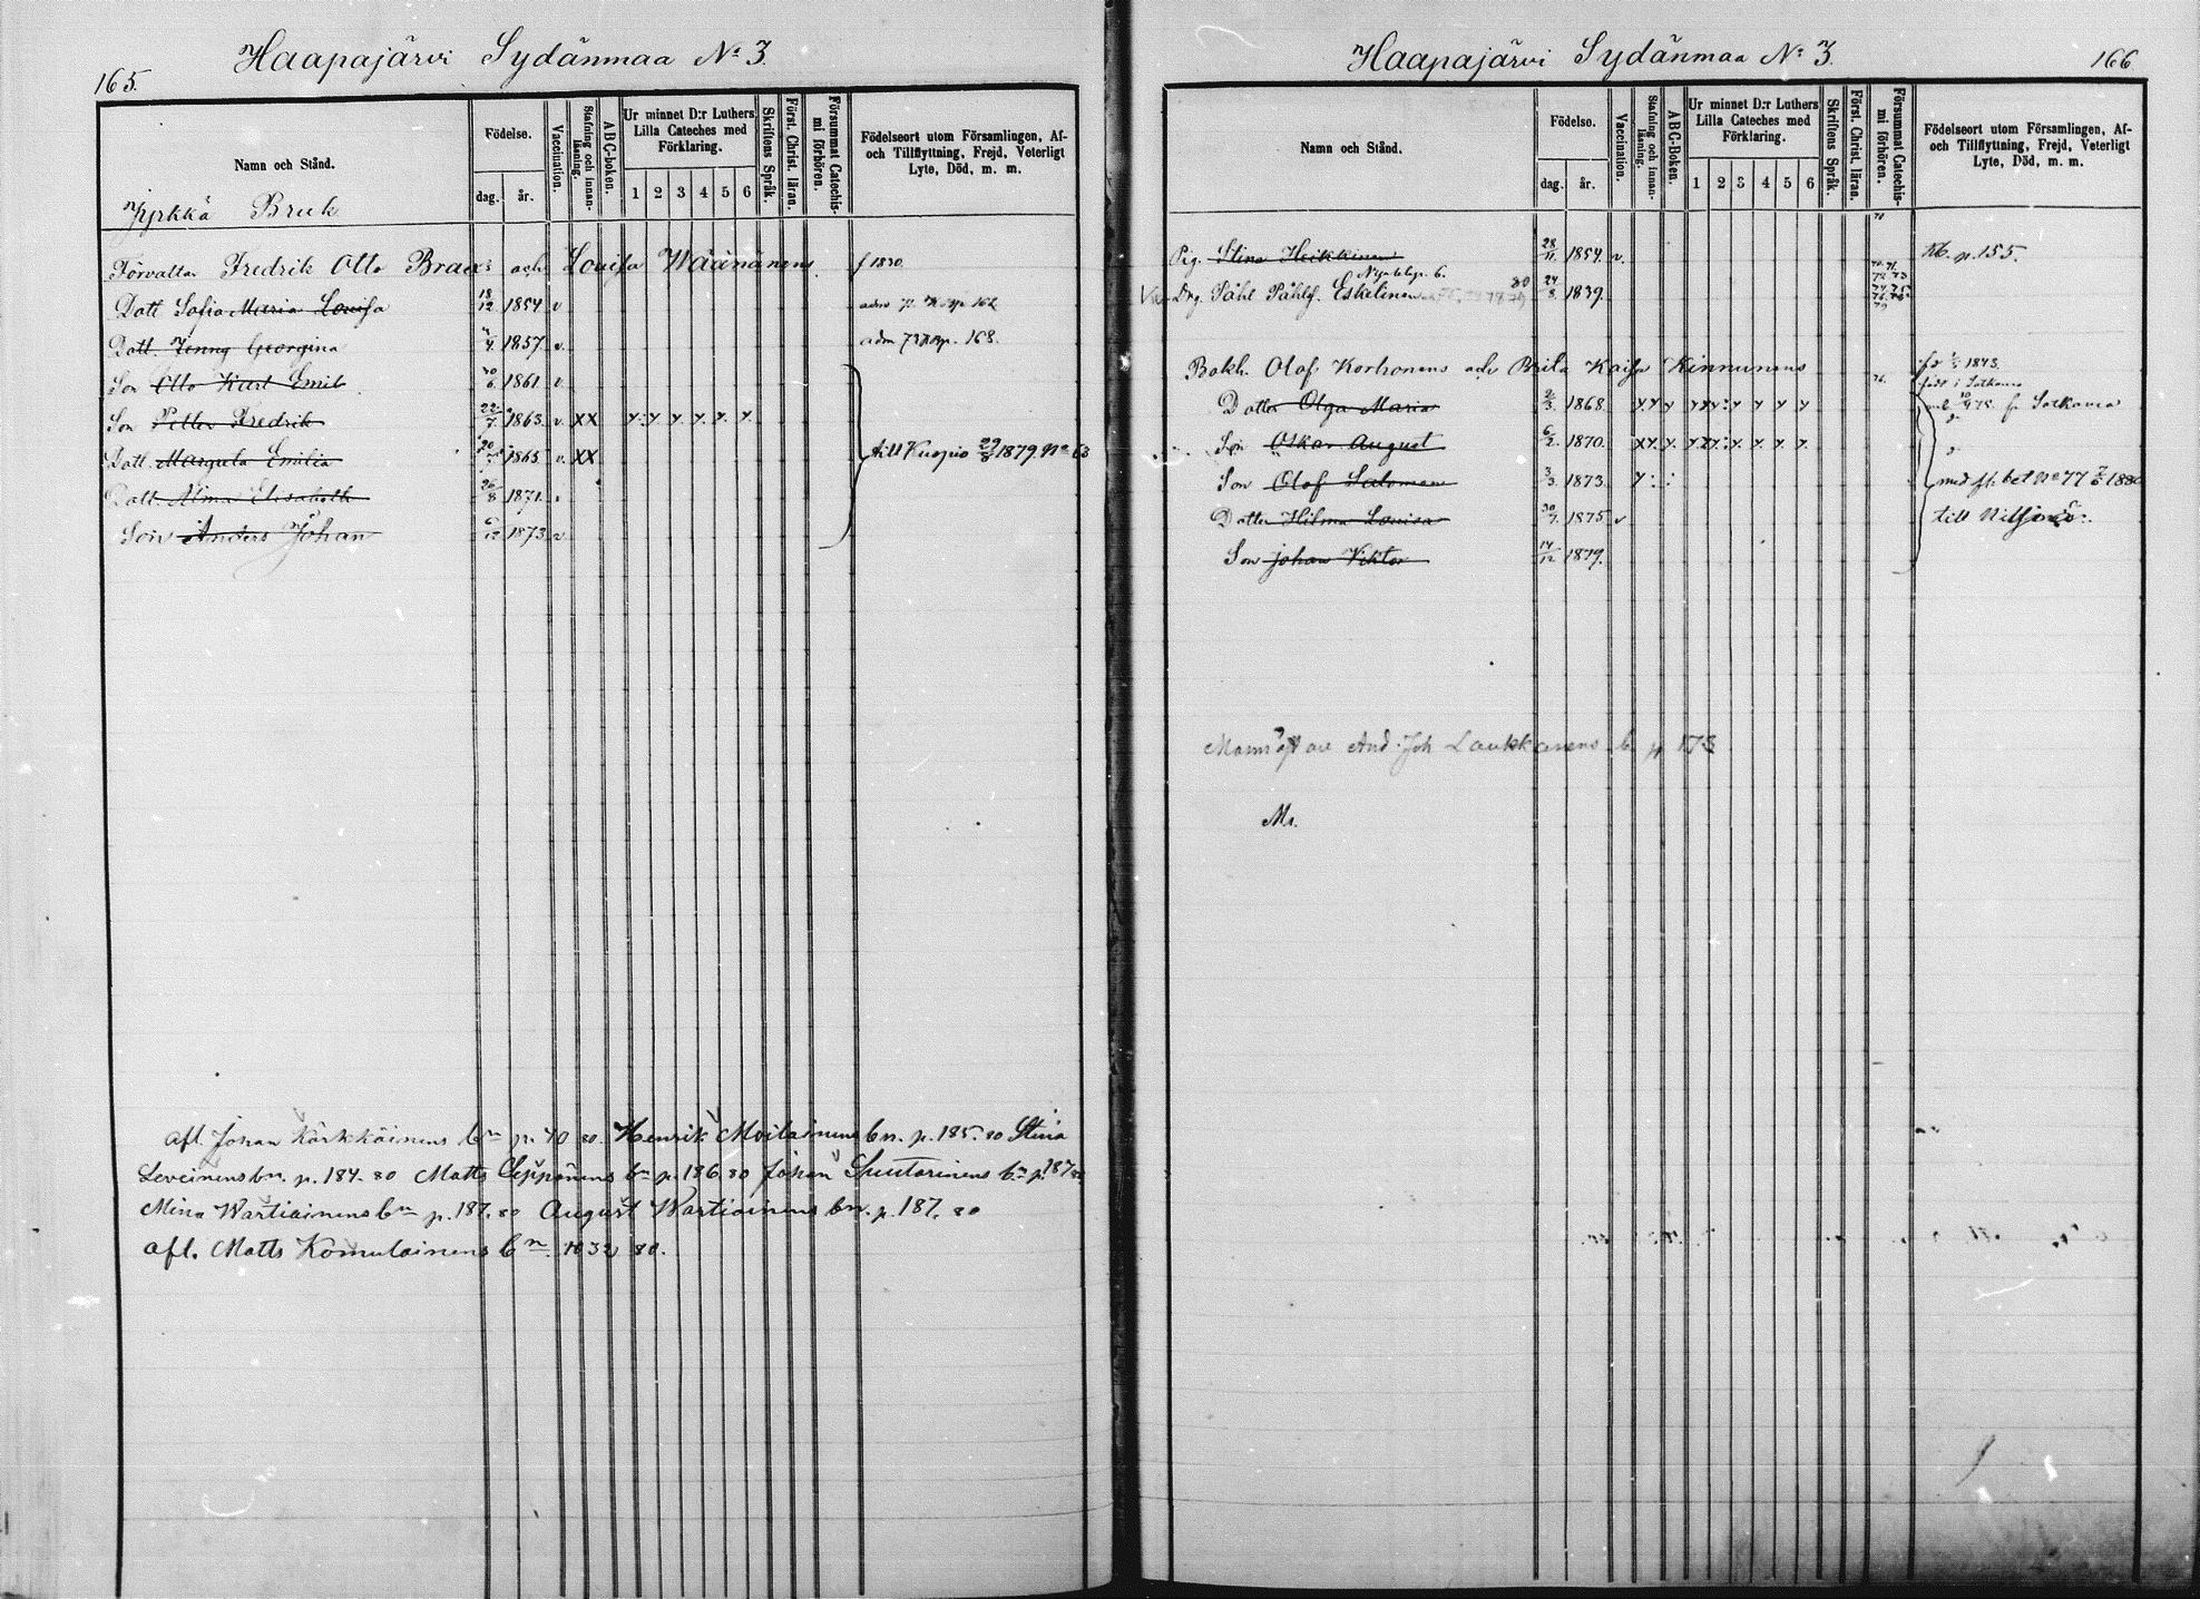 165.
Haapajärvi Sydänmaa No 3.
Namn och Stånd.
Födelse.
dag.
år.
Vaccination.
Stafning och innanläsning.
ABC-boken.
Ur minnet D:r Luthers Lilla Cateches med Förklaring.
1 2 3 4 5 6
Skriftens Språk.
Först. Christ. läran.
Försummat Catechismi förhören.
Födelseort utom Församlingen, Af- och Tillflyttning, Frejd, Veterligt Lyte, Död, m. m.
Jyrkkä Bruk
Förvaltar Fredrik Otto Brax's och Louisa Wäänänens. f 1830.
Dott Sofia Maria Lovisa 18/12 1854 v
Dott. Jenny Georgina 1857. v. 168.
Son Otto Karl Emil 1861 v
Son Petter Fredrik 22/7 1863 v XX
Dott. Margreta Emilia 1865 v. XX till Kuopio 29/8 1879. No 63
Dott. Alma Elisabeth 26/8 1871.
Son Anders Johan 1873 v
afl. Johan Kärkkäinens bn p. 70 80. Henrik Moilainens bn. p. 185. 80 Stina
Leveinens bn. p. 184. 80 Matts Seppänens bn p. 186. 80 Johan Suutarinens bn p. 187 80
Mina Wartiainens bn p. 187. 80 August Wartiainens bn. p. 187. 80
afl. Matts Komulainens bn. 1032 80.
Haapajärvi Sydänmaa No 3.
166
Namn och Stånd.
Födelse.
dag.
år.
Vaccination.
Stafning och innanläsning.
ABC-Boken.
Ur minnet D:r Luthers Lilla Cateches med Förklaring.
1 2 3 4 5 6
Skriftens Språk.
Först. Christ. läran.
Försummat Catechismi förhören.
Födelseort utom Församlingen, Af- och Tillflyttning, Frejd, Veterligt Lyte, Död, m. m.
Pig. Stina Heikkinen 28/11. 1854. v. p. 155.
Drg. Påhl Påhlss. Eskelinen 80 24/8. 1839.
Bokh. Olof Korhonens och Brita Kaisa Kinnunens 1843.
född i Sotkamo
Dotter Olga Maria 2/3. 1868. fr Sotkamo
Son Oskar August 6/2. 1870.
Son Olof Salomon 3/3. 1873. med fl. bet No 77 1880
Dotter Hilma Lovisa 30/7. 1875 v till Nilsiä.
Son Johan Viktor 14/12 1879.
And. Joh Laukkanens b. p 173
Ms.